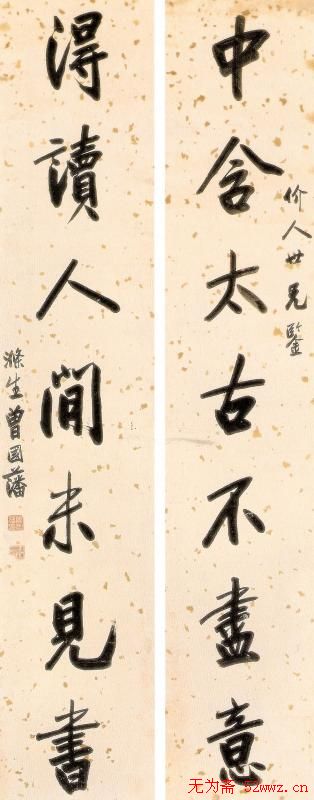 中含太古不盡意
价人世兄鑒
得讀人間未見書
滌生曾國藩
无为斋 52wwz.cn